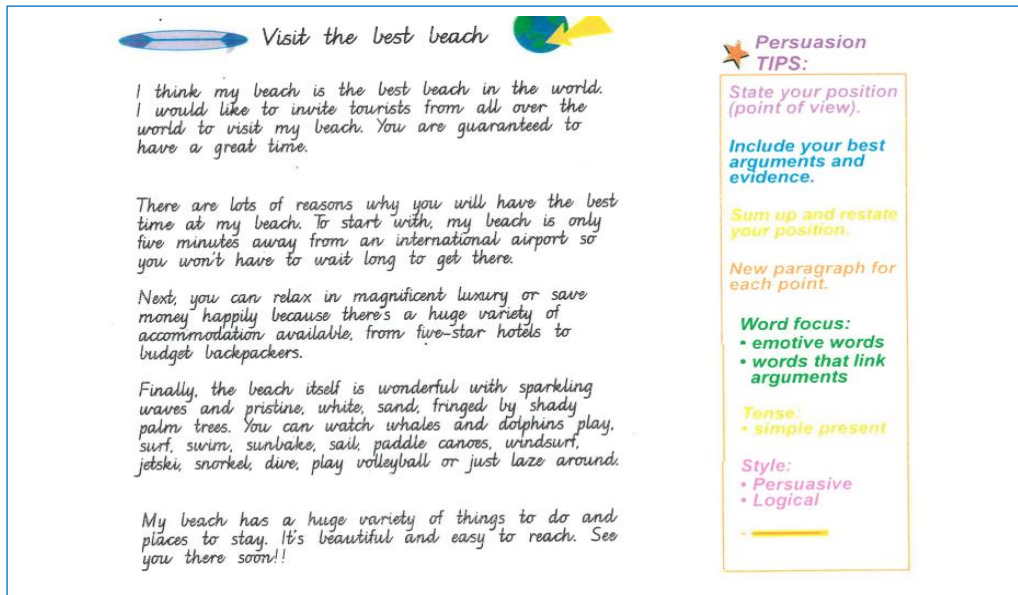 Visit the best beach
I think my beach is the best beach in the world.
I would like to invite tourists from all over the
world to visit my beach. You are guaranteed to
have a great time.
There are lots of reasons why you will have the best
time at my beach. To start with, my beach is only
five minutes away from an international airport so
you won't have to wait long to get there.
Next, you can relax in magnificent luxury or save
money happily because there's a huge variety of
accommodation available, from five-star hotels to
budget backpackers.
Finally, the beach itself is wonderful with sparkling
waves and pristine, white, sand, fringed by shady
palm trees. You can watch whales and dolphins play,
surf, swim, sunbake, sail, paddle canoes, windsurf,
jetski, snorkel, dive, play volleyball or just laze around.
My beach has a huge variety of things to do and
places to stay. It's beautiful and easy to reach. See
you there soon!!
Persuasion
TIPS:
State your position
(point of view).
Include your best
arguments and
evidence.
Sum up and restate
your position.
New paragraph for
each point.
Word focus:
• emotive words
• words that link
arguments
Tense:
• simple present
Style:
• Persuasive
• Logical